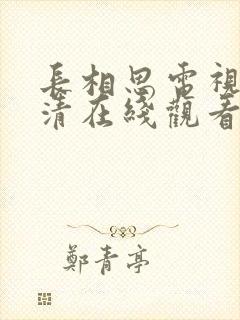 長相思電視
清在綫觀看
鄭青亭